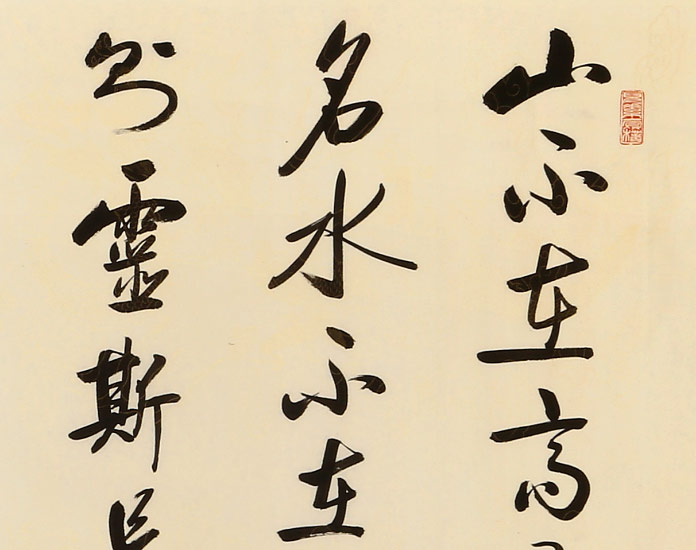 山不在高
名水不在
則靈斯是